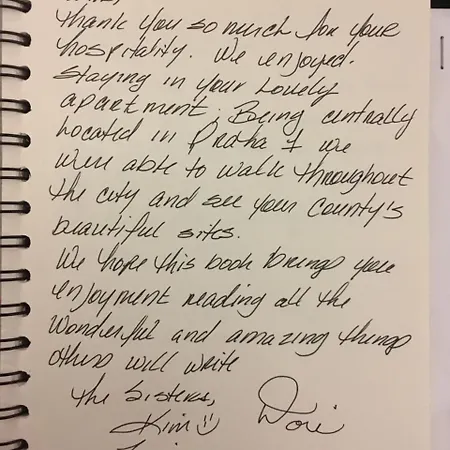 Thank you so much for your
hospitality. We enjoyed
staying in your lovely
apartment. Being centrally
located in Praha 7 we
were able to walk throughout
the city and see your County's
beautiful sites.
We hope this book brings you
enjoyment reading all the
wonderful and amazing things
others will write
The Sisters,
Kim Dori